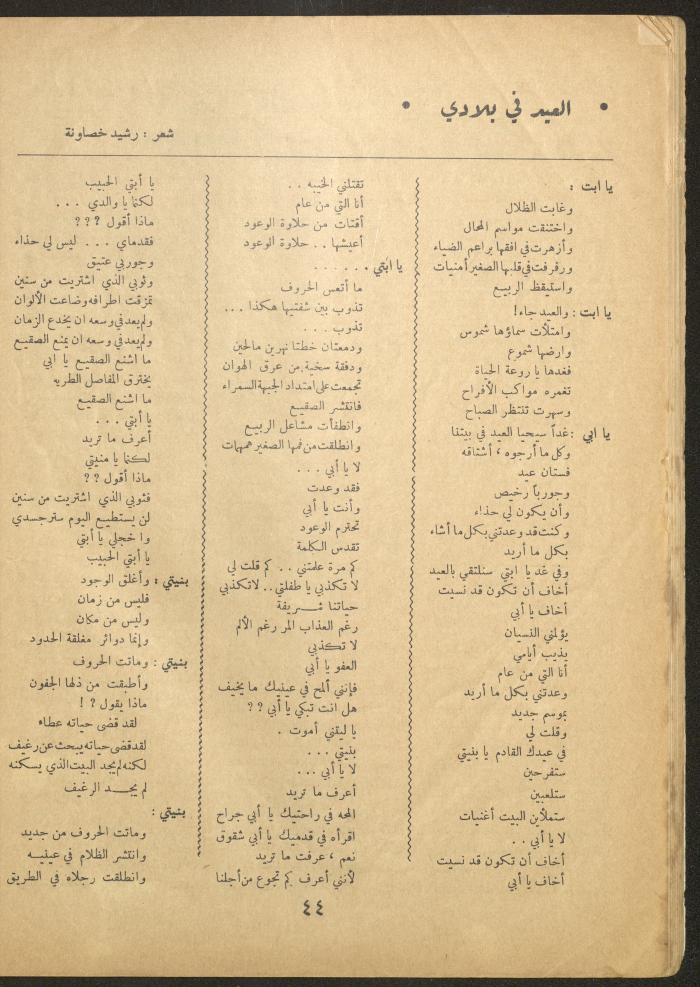 • العيد في بلادي •
شعر : رشيد خصاونة
يا ابت :
وغابت الظلال
واختنقت مواسم المحال
وأزهرت في افقها براعم الضياء
ورفرفت في قلبها الصغير أمنيات
واستيقظ الربيع
يا ابت : والعيد جاء!
وامتلأت سماؤها شموس
وارضها شموع
فغدها يا روعة الحياة
تغمره مواكب الأفراح
وسهرت تنتظر الصباح
يا ابي : غداً سيحيا العيد في بيتنا
وكل ما أرجوه ، أشتاقه
فستان عيد
وجورباً رخيص
وأن يكون لي حذاء
وكنت قد وعدتني بكل ما أشاء
بكل ما أريد
وفي غد يا ابتي سنلتقي بالعيد
أخاف أن تكون قد نسيت
أخاف يا أبي
يؤلمني النسيان
يذيب أيامي
أنا التي من عام
وعدتني بكل ما أريد
بموسم جديد
وقلت لي
في عيدك القادم يا بنيتي
ستفرحين
ستلعبين
ستملأين البيت أغنيات
لا يا أبي . .
أخاف أن تكون قد نسيت
أخاف يا أبي
تقتلني الخيبه . .
أنا التي من عام
أقتات من حلاوة الوعود
أعيشها . . حلاوة الوعود
يا ابتي . . . . . .
ما أتعس الحروف
تذوب بين شفتيها هكذا . . .
تذوب . . .
ودمعتان خطتا نهرين مالحين
ودفقة سخية من عرق الهوان
تجمعت على امتداد الجبهة السمراء
فانتشر الصقيع
وانطفأت مشاعل الربيع
وانطلقت من فمها الصغير همهمات
لا يا أبي . . .
فقد وعدت
وأنت يا أبي
تحترم الوعود
تقدس الكلمة
كم مرة علمتني . . كم قلت لي
لا تكذبي يا طفلتي . . لا تكذبي
حياتنا شريفة
رغم العذاب المر رغم الألم
لا تكذبي
العفو يا أبي
فإنني ألمح في عينيك ما يخيف
هل انت تبكي يا أبي ? ?
يا ليتني أموت .
بنيتي . . .
لا يا أبي . . .
أعرف ما تريد
المحه في راحتيك يا أبي جراح
اقرأه في قدميك يا أبي شقوق
نعم ، عرفت ما تريد
لأنني أعرف كم تجوع من أجلنا
يا أبتي الحبيب
لكننا يا والدي . . .
ماذا أقول ? ? ?
فقدماي . . . ليس لي حذاء
وجوربي عتيق
وثوبي الذي اشتريت من سنين
تمزقت اطرافه وضاعت الألوان
ولم يعد في وسعه ان يخدع الزمان
ولم يعد في وسعه ان يمنع الصقيع
ما اشنع الصقيع يا ابي
يخترق المفاصل الطريه
ما اشنع الصقيع
يا أبتي . . .
أعرف ما تريد
لكننا يا منيتي
ماذا أقول ? ?
فثوبي الذي اشتريت من سنين
لن يستطيع اليوم ستر جسدي
وا خجلي يا أبتي
يا أبتي الحبيب
بنيتي : وأغلق الوجود
فليس من زمان
وليس من مكان
وإنما دوائر مغلقة الحدود
بنيتي : وماتت الحروف
وأطبقت من ذلها الجفون
ماذا يقول ? !
لقد قضى حياته عطاء
لقد قضى حياته يبحث عن رغيف
لكنه لم يجد البيت الذي يسكنه
لم يجد الرغيف
بنيتي :
وماتت الحروف من جديد
وانتشر الظلام في عينيه
وانطلقت رجلاه في الطريق
٤٤